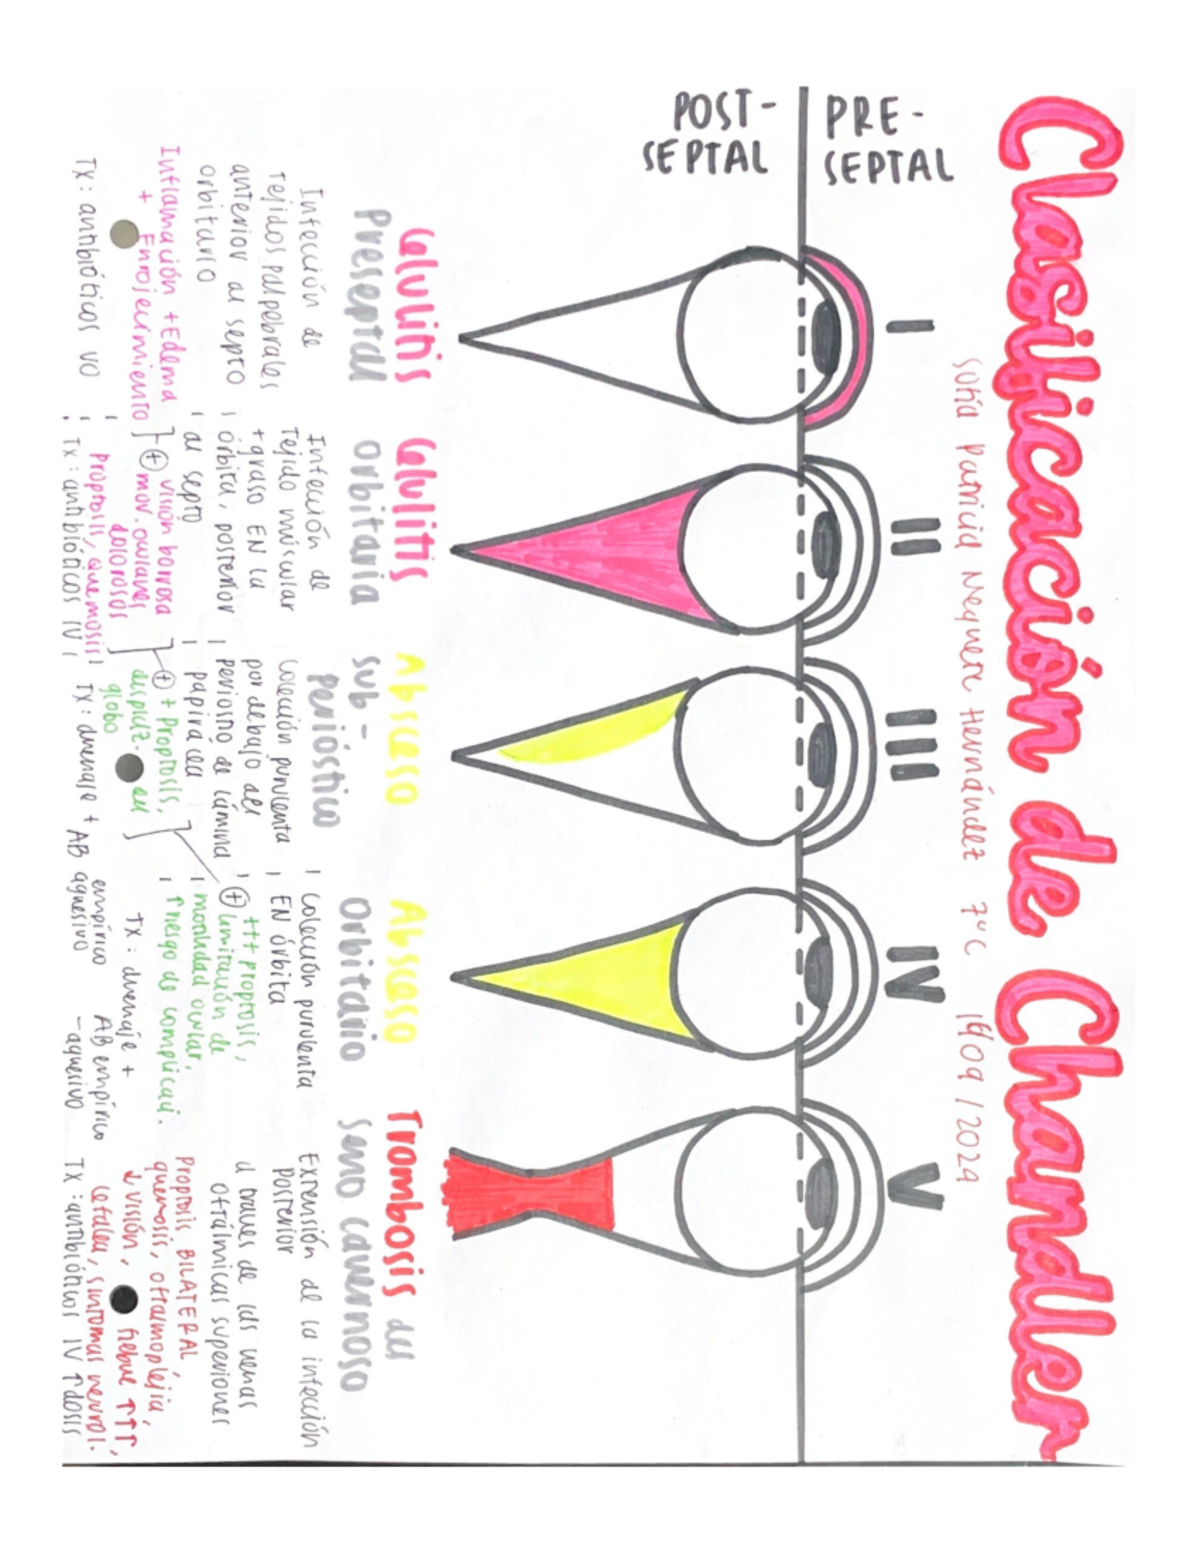 Clasificación de Chandler
Sofía Patricia Negrete Hernández 7°C 19/09/2024
PRE-
SEPTAL
POST-
SEPTAL
I
II
III
IV
V
Celulitis
Preseptal
Infección de
tejidos palpebrales
anterior al septo
orbitario
Inflamación + Edema
+ Enrojecimiento
Tx: antibióticos VO
Celulitis
orbitaria
Infección de
Tejido múscular
+ graso EN la
órbita, posterior
al septo
+ visión borrosa
+ mov. oculares
dolorosos
proptosis, quemosis
Tx: antibióticos IV
Absceso
sub-
perióstico
Colección purulenta
por debajo del
periostio de lámina
papirácea
+ + proptosis,
desplaz. del
globo
Tx: drenaje + AB
empírico
agresivo
Absceso
Orbitario
Colección purulenta
EN órbita
+++ proptosis,
+ limitación de
motilidad ocular.
↑ riesgo de complicaci.
Tx: drenaje +
AB empírico
-agresivo
Trombosis del
Seno cavernoso
Extensión de la infección
posterior
a traves de las venas
oftálmicas superiores
Proptosis BILATERAL
quemosis, oftalmoplejía,
↓ visión, fiebre ↑↑↑,
cefalea, síntomas neurol.
Tx: antibióticos IV ↑ dosis